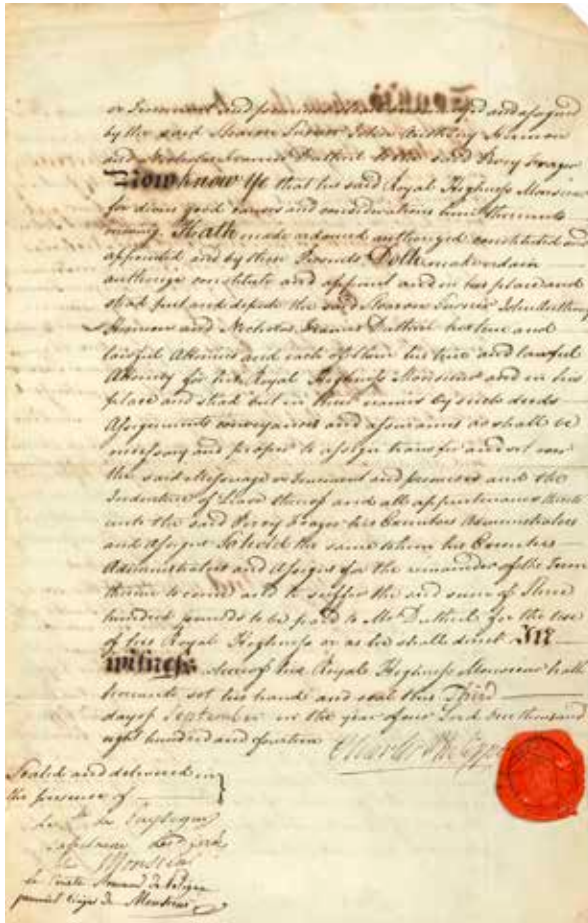 or Tenement and premises and assigned
by the said Sharon Turner John Anthony Hermon
and Nicholas Francis Dutheil to the said Percy Frazer
Now know Ye that his said Royal Highness Monsieur
for divers good causes and considerations him thereunto
moving Hath made ordained authorized constituted and
appointed and by these Presents Doth make ordain
authorize constitute and appoint and in his place and
stead put and depute the said Sharon Turner John Anthony
Hermon and Nicholas Francis Dutheil his true and
lawful Attornies and each of them his true and lawful
Attorney for his Royal Highness Monsieur and in his
place and stead but in their names by such deeds
Assignments conveyances and assurances as shall be
necessary and proper to assign transfer and set over
the said Messuage or Tenement and premises and the
Indenture of Lease thereof and all appurtenances
unto the said Percy Frazer his Executors Administrators
and Assigns To hold the same to him his Executors
Administrators and Assigns for the remainder of the Term
therein to come and to suffer the said sum of Three
hundred pounds to be paid to Mr Dutheil for the use
of his Royal Highness or as he shall direct In
witness whereof his Royal Highness Monsieur hath
hereunto set his hand and seal this Third
day of September in the year of our Lord One thousand
eight hundred and fourteen
Sealed and delivered in
the presence of
de
Capitaine des
de Monsieur
Le Comte Armand de
premier de Monsieur